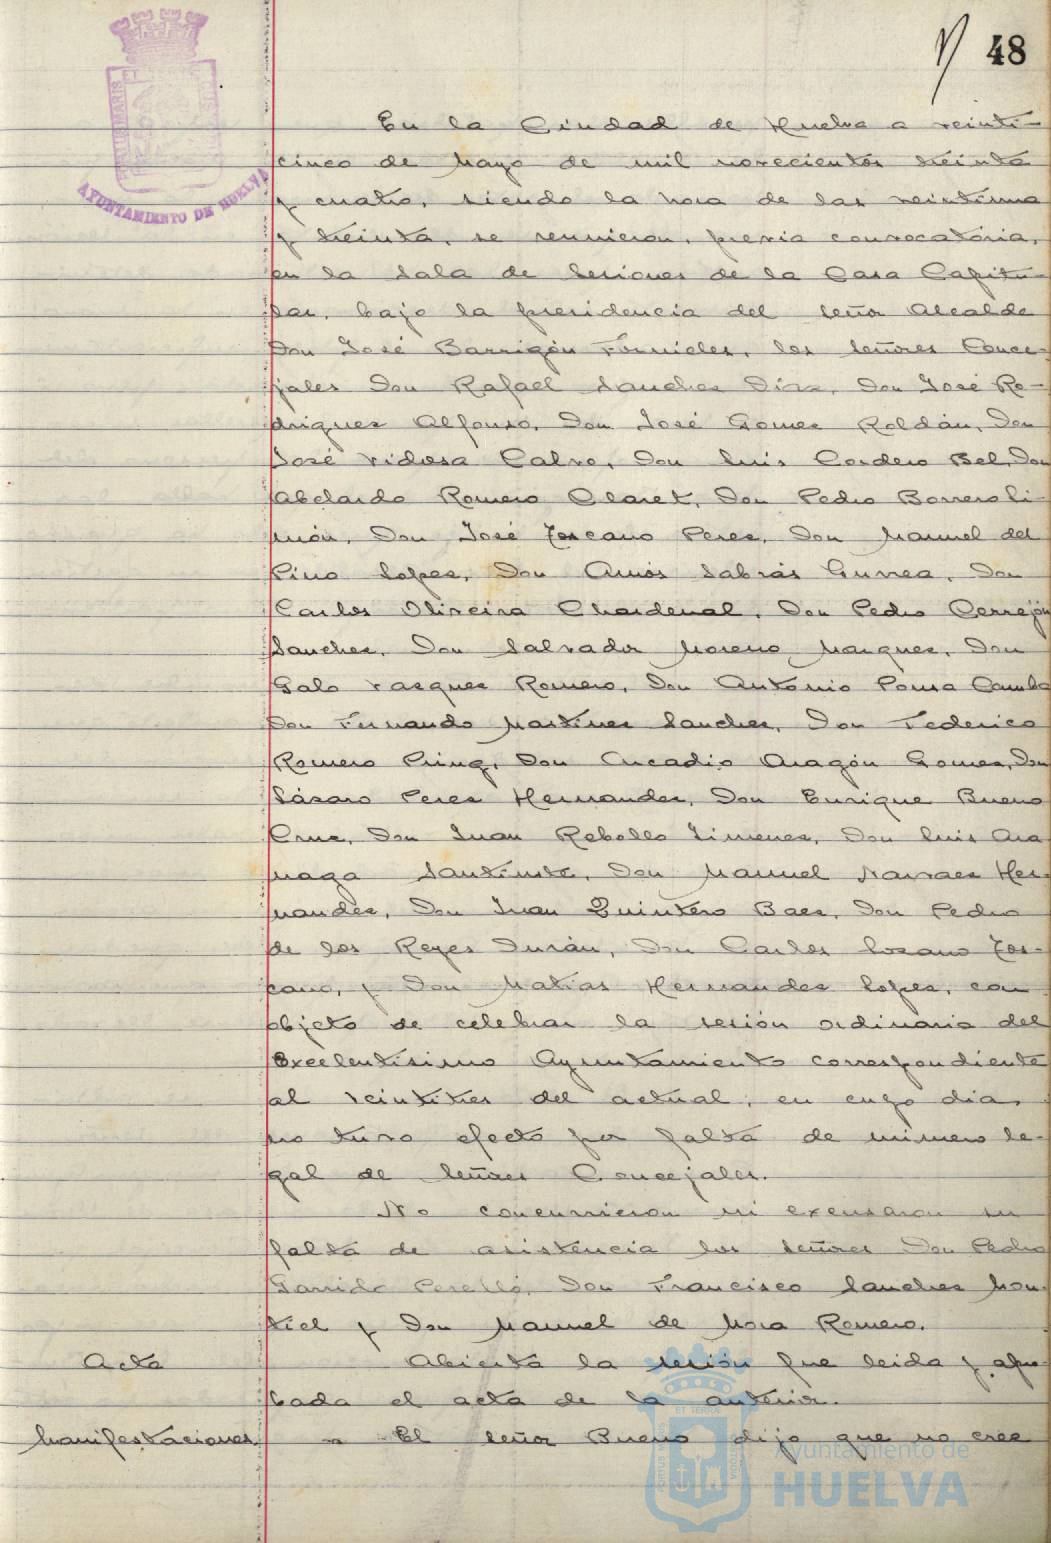 48
PORTUS MARIS
AYUNTAMIENTO DE HUELVA
En la Ciudad de Huelva a veinti-
cinco de Mayo de mil novecientos treinta
y cuatro, siendo la hora de las veintiuna
y treinta, se reunieron, previa convocatoria,
en la Sala de Sesiones de la Casa Capitu-
lar, bajo la presidencia del señor Alcalde
Don José Barrigón Fornieles, los señores Conce-
jales Don Rafael Sanchez Diaz, Don José Ro-
driguez Alfonso, Don José Gomez Roldán, Don
José Vidosa Calvo, Don Luis Cordero Bel, Don
Abelardo Romero Claret, Don Pedro Borrero Li-
món, Don José Toscano Perez, Don Manuel del
Pino Lopez, Don Amós Sabrás Gurrea, Don
Carlos Oliveira Chardenal, Don Pedro Cerrejón
Sanchez, Don Salvador Moreno Marquez, Don
Galo Vazquez Romero, Don Antonio Pousa Camba
Don Fernando Martinez Sanchez, Don Federico
Romero Don Arcadio Aragón Gomez, Don
Lázaro Perez Hernandez, Don Enrique Bueno
Cruz, Don Juan Rebollo Jimenez, Don Luis
Don Manuel Narvaez Her-
nandez, Don Juan Quintero Baez, Don Pedro
de los Reyes Durán, Don Carlos Lozano Tos-
cano, y Don Matias Hernandez Lopez, con
objeto de celebrar la sesión ordinaria del
Excelentisimo Ayuntamiento correspondiente
al veintitres del actual, en cuyo dia,
no tuvo efecto por falta de número le-
gal de señores Concejales.
No concurrieron ni excusaron su
falta de asistencia los señores Don Pedro
Garrido Perelló, Don Francisco Sanchez Mon-
tiel y Don Manuel de Mora Romero.
Acta Abierta la sesión fue leida y apro-
bada el acta de la anterior.
Manifestaciones - El señor Bueno dijo que no cree
Ayuntamiento de
HUELVA